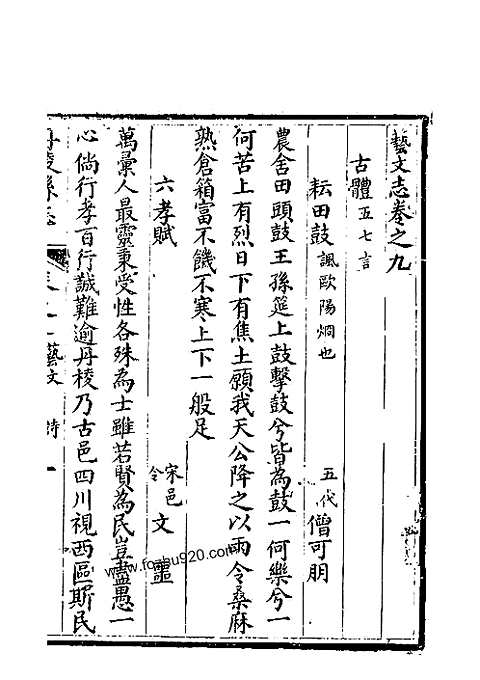 藝文志卷之九
古體五七言
耘田鼓 諷歐陽烱也 五代 僧可朋
農舍田頭鼓王孫筵上鼓擊鼓兮皆為鼓一何樂兮一
何苦上有烈日下有焦土願我天公降之以雨令桑麻
熟倉箱富不饑不寒上下一般足
六孝賦 宋邑令 文 
萬彙人最靈秉受性各殊為士雖若賢為民豈盡愚一
心倘行孝百行誠難逾丹稜乃古邑四川視西區斯民
丹稜縣志 卷之 藝文 詩 一
www.foshu920.com